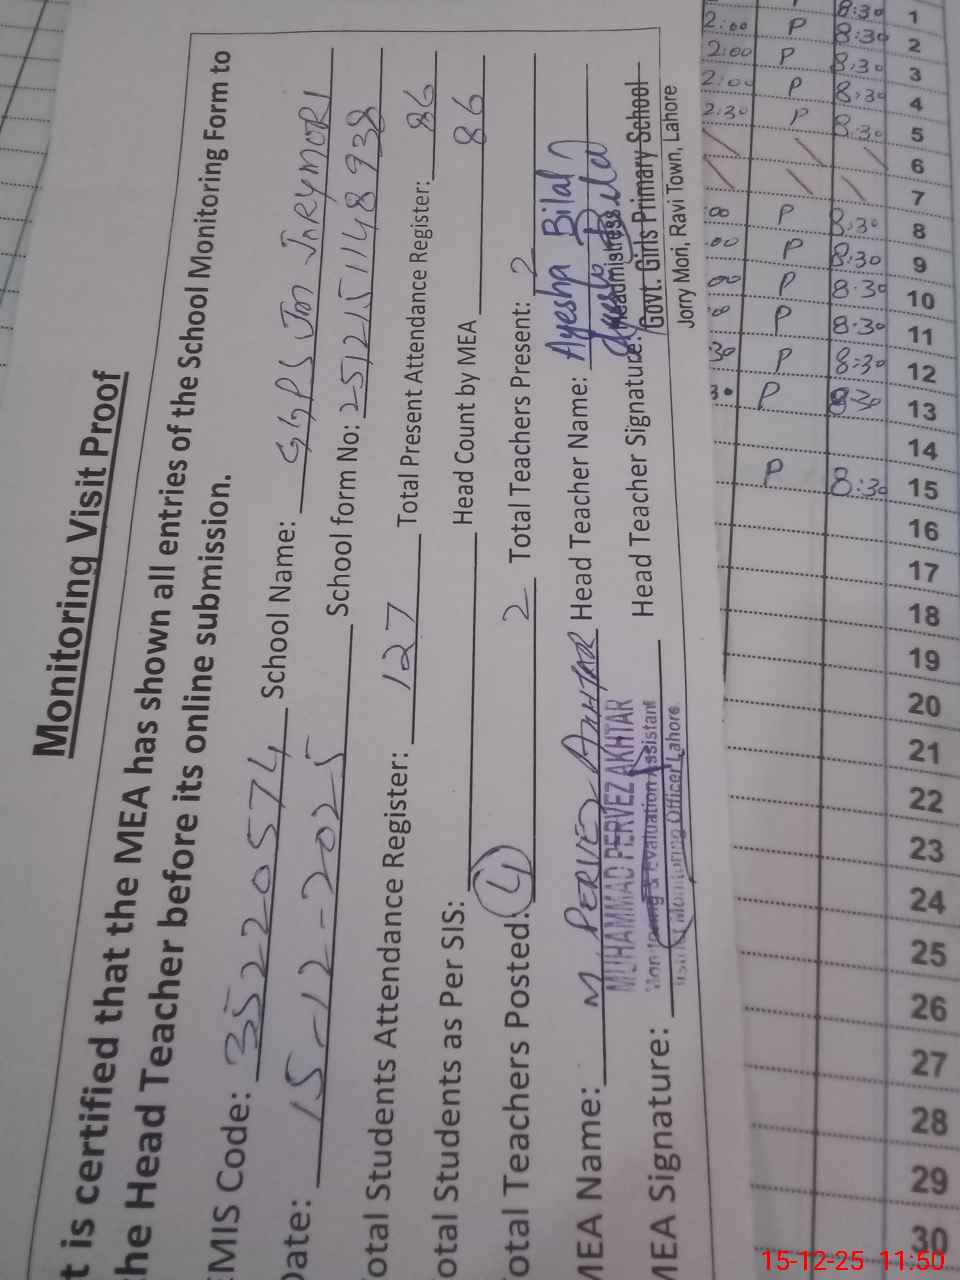 Monitoring Visit Proof
t is certified that the MEA has shown all entries of the School Monitoring Form to
the Head Teacher before its online submission.
EMIS Code: 35220574 School Name: GGPS Jori JoRRYMORI
Date: 15-12-2025 School form No: 2512151148938
otal Students Attendance Register: 127 Total Present Attendance Register: 86
otal Students as Per SIS: Head Count by MEA 86
otal Teachers Posted: 4 2 Total Teachers Present: 2
MEA Name: M PERVEZ AKHTAR Head Teacher Name: Ayesha Bilal
MUHAMMAD PERVEZ AKHTAR
Monitoring & Evaluation Assistant
District Monitoring Officer Lahore
MEA Signature: Head Teacher Signature: Headmistress
Govt. Girls Primary School
Jorry Mori, Ravi Town, Lahore
8:30 1
2:00 P 8:30 2
2:00 P 8:30 3
2:00 P 8:30 4
2:30 P 8:30 5
6
7
00 P 8:30 8
00 P 8:30 9
00 P 8:30 10
P 8:30 11
30 P 8:30 12
30 P 8:30 13
14
P 8:30 15
16
17
18
19
20
21
22
23
24
25
26
27
28
29
30
15-12-25 11:50